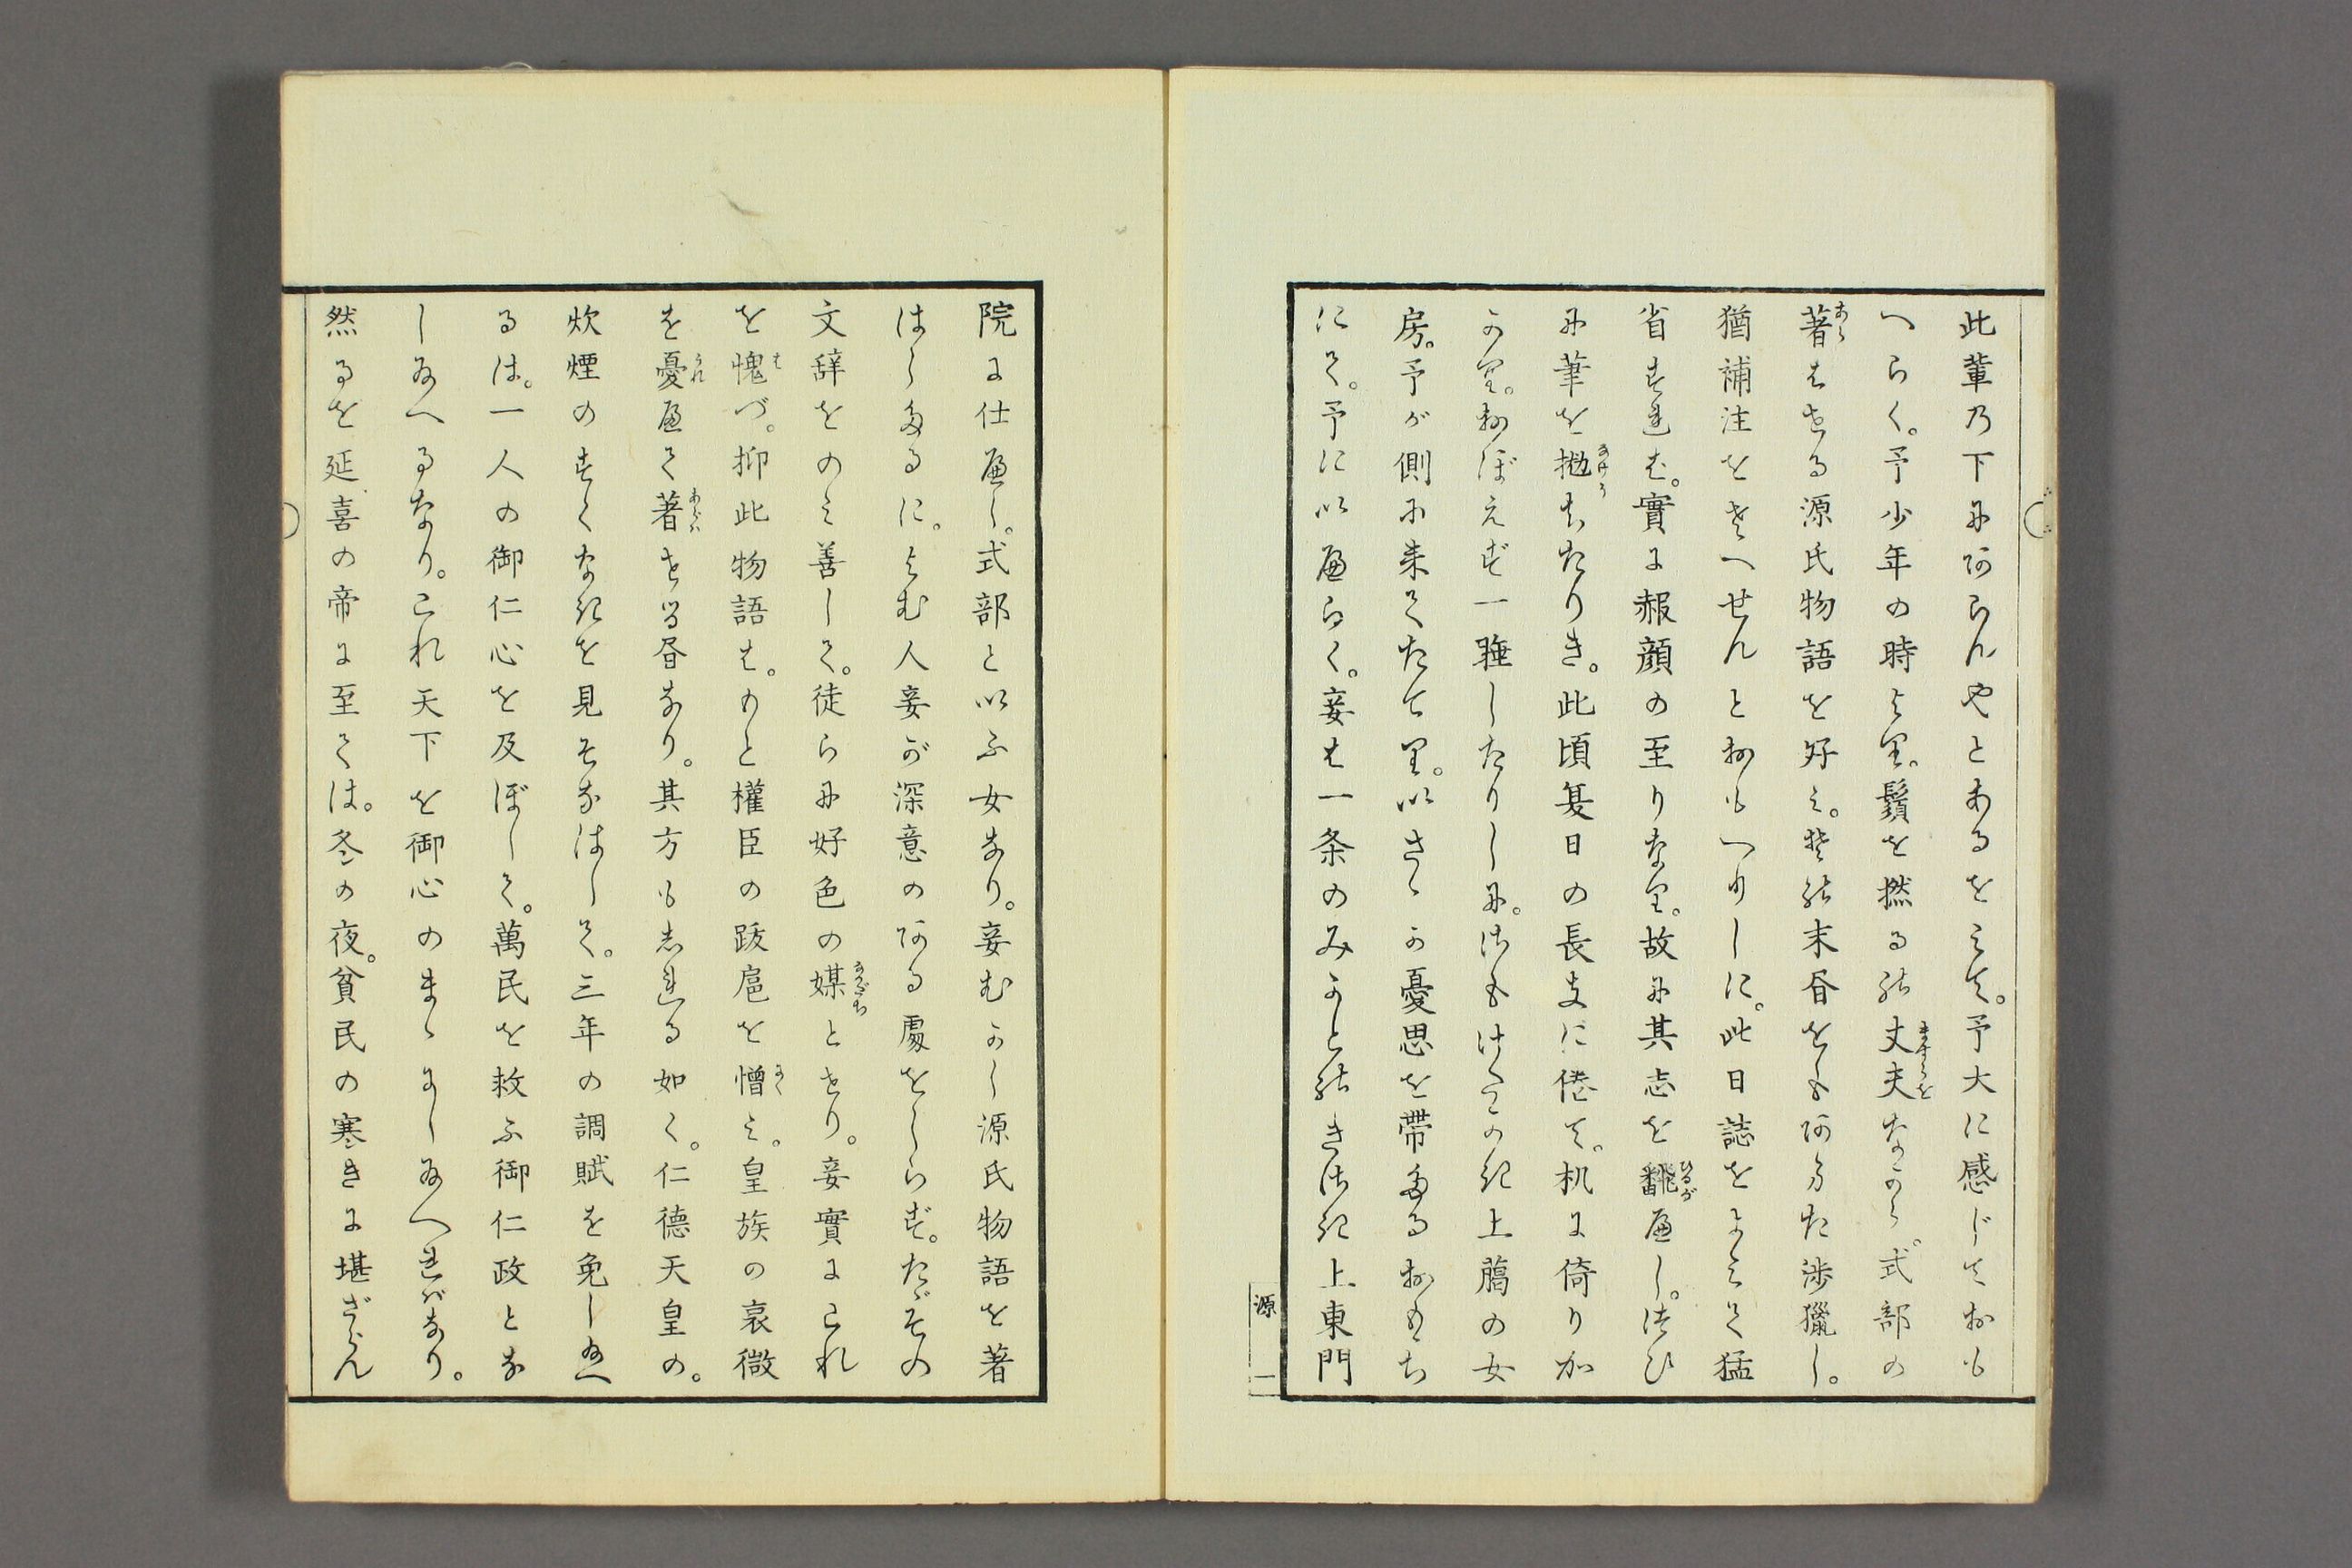 此輩乃下にあらんやとあるをみて。予大に感じておも
へらく。予少年の時より。鬚を撚るの丈夫ながら。式部の
著はせる源氏物語を好み。其の末書をもあらかた渉獵し。
猶補注をそへせんとおもへりしに。此日誌をよみて猛
省すれば。實に赧顔の至りなり。故に其志を飜へし。つひ
に筆を抛ちたりき。此頃夏日の長きに倦て。机に倚りか
かり。おぼえず一睡したりしに。いともけたかき上﨟の女
房。予が側に来てたてり。いささか憂思を帯たるおももち
にて。予にいへらく。妾は一条のみかどのきさき上東門
院に仕へし。式部といふ女なり。妾むかし源氏物語を著
はしたるに。よむ人妾が深意のある處をしらず。たゞその
文辞をのみ善しみて。徒らに好色の媒とせり。妾實にこれ
を愧づ。抑此物語は。もと權臣の跋扈を憎み。皇族の衰微
を憂へて著せる書なり。其方もしれる如く。仁德天皇の。
炊煙のすくなきを見そなはして。三年の調賦を免し給へ
るは。一人の御仁心を及ぼして。萬民を救ふ御仁政とな
し給へるなり。これ天下を御心のまゝにし給へればなり。
然るを延喜の帝に至ては。冬の夜。貧民の寒きに堪ざらん
源
一
あらは
ますらを
ひるが
なげう
なかだち
は
にく
うれ
あらは